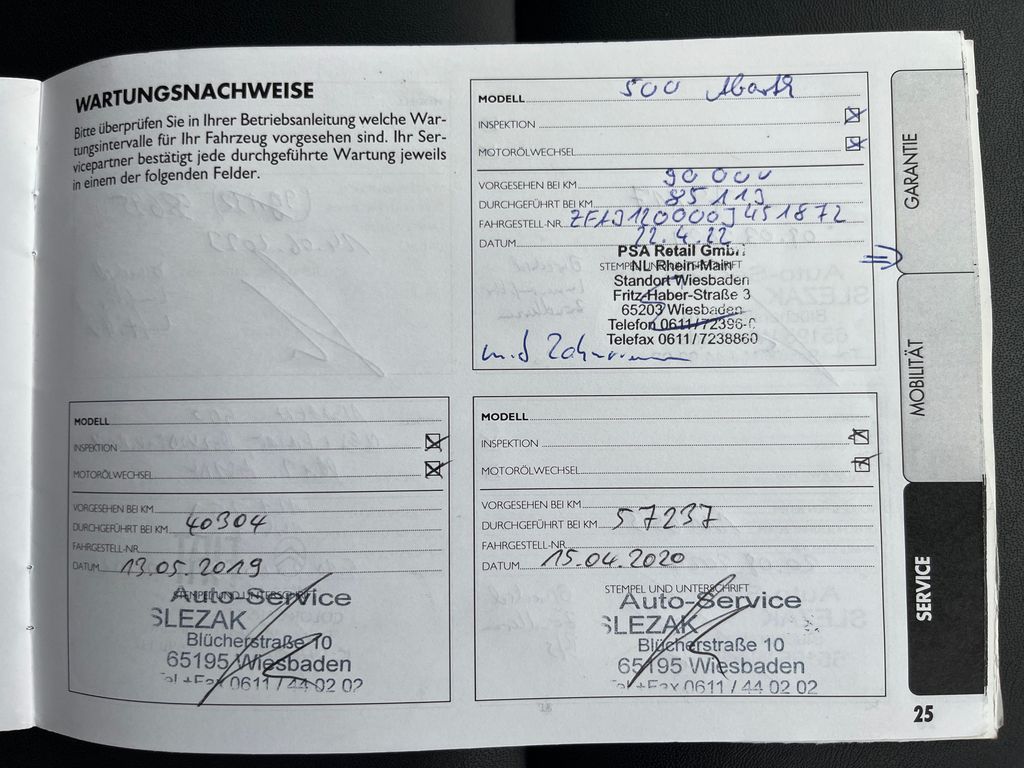 WARTUNGSNACHWEISE
Bitte überprüfen Sie in Ihrer Betriebsanleitung welche War-
tungsintervalle für Ihr Fahrzeug vorgesehen sind. Ihr Ser-
vicepartner bestätigt jede durchgeführte Wartung jeweils
in einem der folgenden Felder.
MODELL 500 Abarth
INSPEKTION
MOTORÖLWECHSEL
VORGESEHEN BEI KM 90 000
DURCHGEFÜHRT BEI KM 85 113
FAHRGESTELL-NR. ZFAJ120000J451872
DATUM 22.4.22
STEMPEL UND UNTERSCHRIFT
PSA Retail GmbH
NL Rhein-Main
Standort Wiesbaden
Fritz-Haber-Straße 3
65203 Wiesbaden
Telefon 0611/72396-0
Telefax 0611/7238860
MODELL
INSPEKTION
MOTORÖLWECHSEL
VORGESEHEN BEI KM
DURCHGEFÜHRT BEI KM 40304
FAHRGESTELL-NR.
DATUM 13.05.2019
STEMPEL UND UNTERSCHRIFT
Auto-Service
SLEZAK
Blücherstraße 10
65195 Wiesbaden
Tel+Fax 0611 / 44 02 02
MODELL
INSPEKTION
MOTORÖLWECHSEL
VORGESEHEN BEI KM
DURCHGEFÜHRT BEI KM 57237
FAHRGESTELL-NR.
DATUM 15.04.2020
STEMPEL UND UNTERSCHRIFT
Auto-Service
SLEZAK
Blücherstraße 10
65195 Wiesbaden
Tel+Fax 0611 / 44 02 02
GARANTIE
MOBILITÄT
SERVICE
25